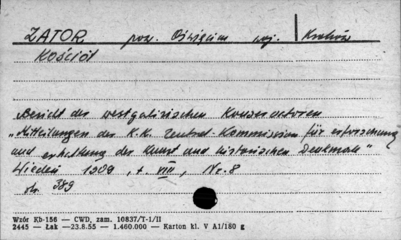 ZATOR pow. Oświęcim woj. Kraków
Kościół
Bericht der westgalizischen Konservatoren
"Mitteilungen der K.K. Zentral-Kommission für erforschung
und erhaltung der Kunst und historischen Denkmale"
Wiedeń 1909, t. VIII, Nr. 8
str. 389
Wzór Kb-156 — CWD, zam. 10837/T-1/II
2445 — Łak —23.8.55 — 1.460.000 — Karton kl. V A1/180 g